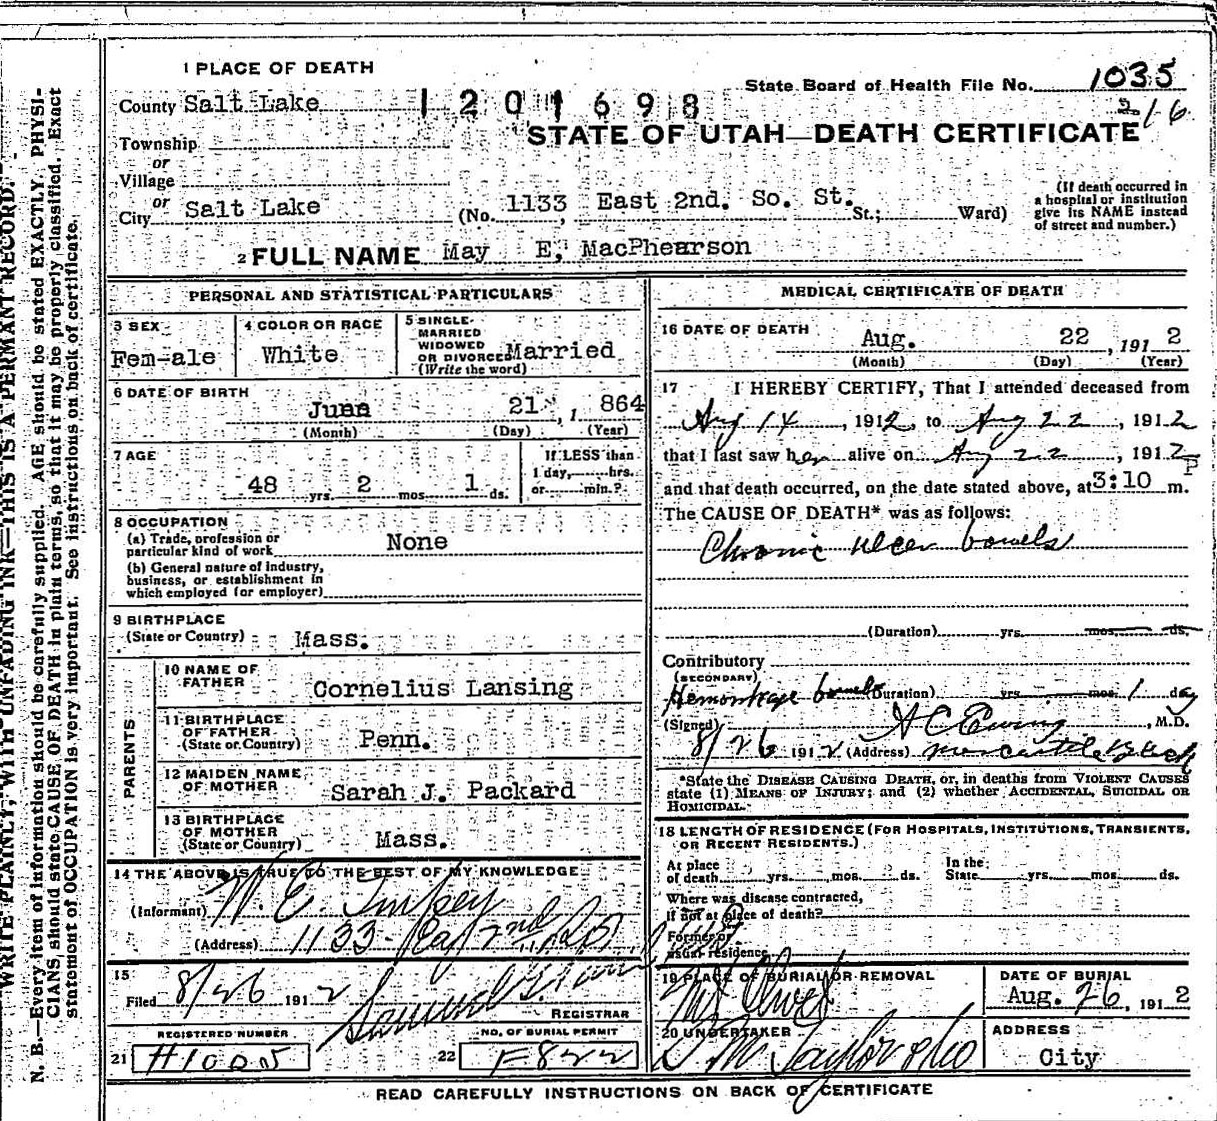 WRITE PLAINLY, WITH UNFADING INK—THIS IS A PERMANT RECORD.
N. B.—Every item of information should be carefully supplied. AGE should be stated EXACTLY. PHYSI-
CIANS should state CAUSE OF DEATH in plain terms, so that it may be properly classified. Exact
statement of OCCUPATION is very important. See instructions on back of certificate.
1 PLACE OF DEATH
State Board of Health File No. 1035
County Salt Lake 1201698
216
STATE OF UTAH—DEATH CERTIFICATE
Township
or
Village
or
City Salt Lake (No. 1133, East 2nd. So. St. St.; Ward)
(If death occurred in
a hospital or institution
give its NAME instead
of street and number.)
2 FULL NAME May E, MacPhearson
PERSONAL AND STATISTICAL PARTICULARS
3 SEX
Fem-ale
4 COLOR OR RACE
White
5 SINGLE
MARRIED
WIDOWED
OR DIVORCED Married
(Write the word)
6 DATE OF BIRTH
June 21, 1864
(Month) (Day) (Year)
7 AGE
48 yrs. 2 mos. 1 ds.
If LESS than
1 day, hrs.
or min.?
8 OCCUPATION
(a) Trade, profession or
particular kind of work None
(b) General nature of industry,
business, or establishment in
which employed (or employer)
9 BIRTHPLACE
(State or Country) Mass.
PARENTS
10 NAME OF
FATHER Cornelius Lansing
11 BIRTHPLACE
OF FATHER
(State or Country) Penn.
12 MAIDEN NAME
OF MOTHER Sarah J. Packard
13 BIRTHPLACE
OF MOTHER
(State or Country) Mass.
14 THE ABOVE IS TRUE TO THE BEST OF MY KNOWLEDGE
(Informant) W. E.
(Address) 1133 2nd So
15
Filed 8/26 1912 Samuel G.
REGISTRAR
REGISTERED NUMBER
21 H1005
NO. OF BURIAL PERMIT
22 F822
MEDICAL CERTIFICATE OF DEATH
16 DATE OF DEATH
Aug. 22, 1912
(Month) (Day) (Year)
17 I HEREBY CERTIFY, That I attended deceased from
Aug 14, 1912, to Aug 22, 1912
that I last saw her alive on Aug 22, 1912
and that death occurred, on the date stated above, at 3:10 P m.
The CAUSE OF DEATH* was as follows:
Chronic ulcer bowels
(Duration) yrs. mos. ds.
Contributory
(SECONDARY)
Hemorrhage bowels (Duration) yrs. mos. 1 day
(Signed) A C Ewing, M.D.
8/26 1912 (Address) Mercantile Block
*State the DISEASE CAUSING DEATH, or, in deaths from VIOLENT CAUSES
state (1) MEANS OF INJURY; and (2) whether ACCIDENTAL, SUICIDAL OR
HOMICIDAL.
18 LENGTH OF RESIDENCE (FOR HOSPITALS, INSTITUTIONS, TRANSIENTS,
OR RECENT RESIDENTS.)
At place
of death yrs. mos. ds.
In the
State yrs. mos. ds.
Where was disease contracted,
If not at place of death?
Former or
usual residence
19 PLACE OF BURIAL OR REMOVAL
Mt Olivet
DATE OF BURIAL
Aug. 26, 1912
20 UNDERTAKER
S M Taylor & Co
ADDRESS
City
READ CAREFULLY INSTRUCTIONS ON BACK OF CERTIFICATE